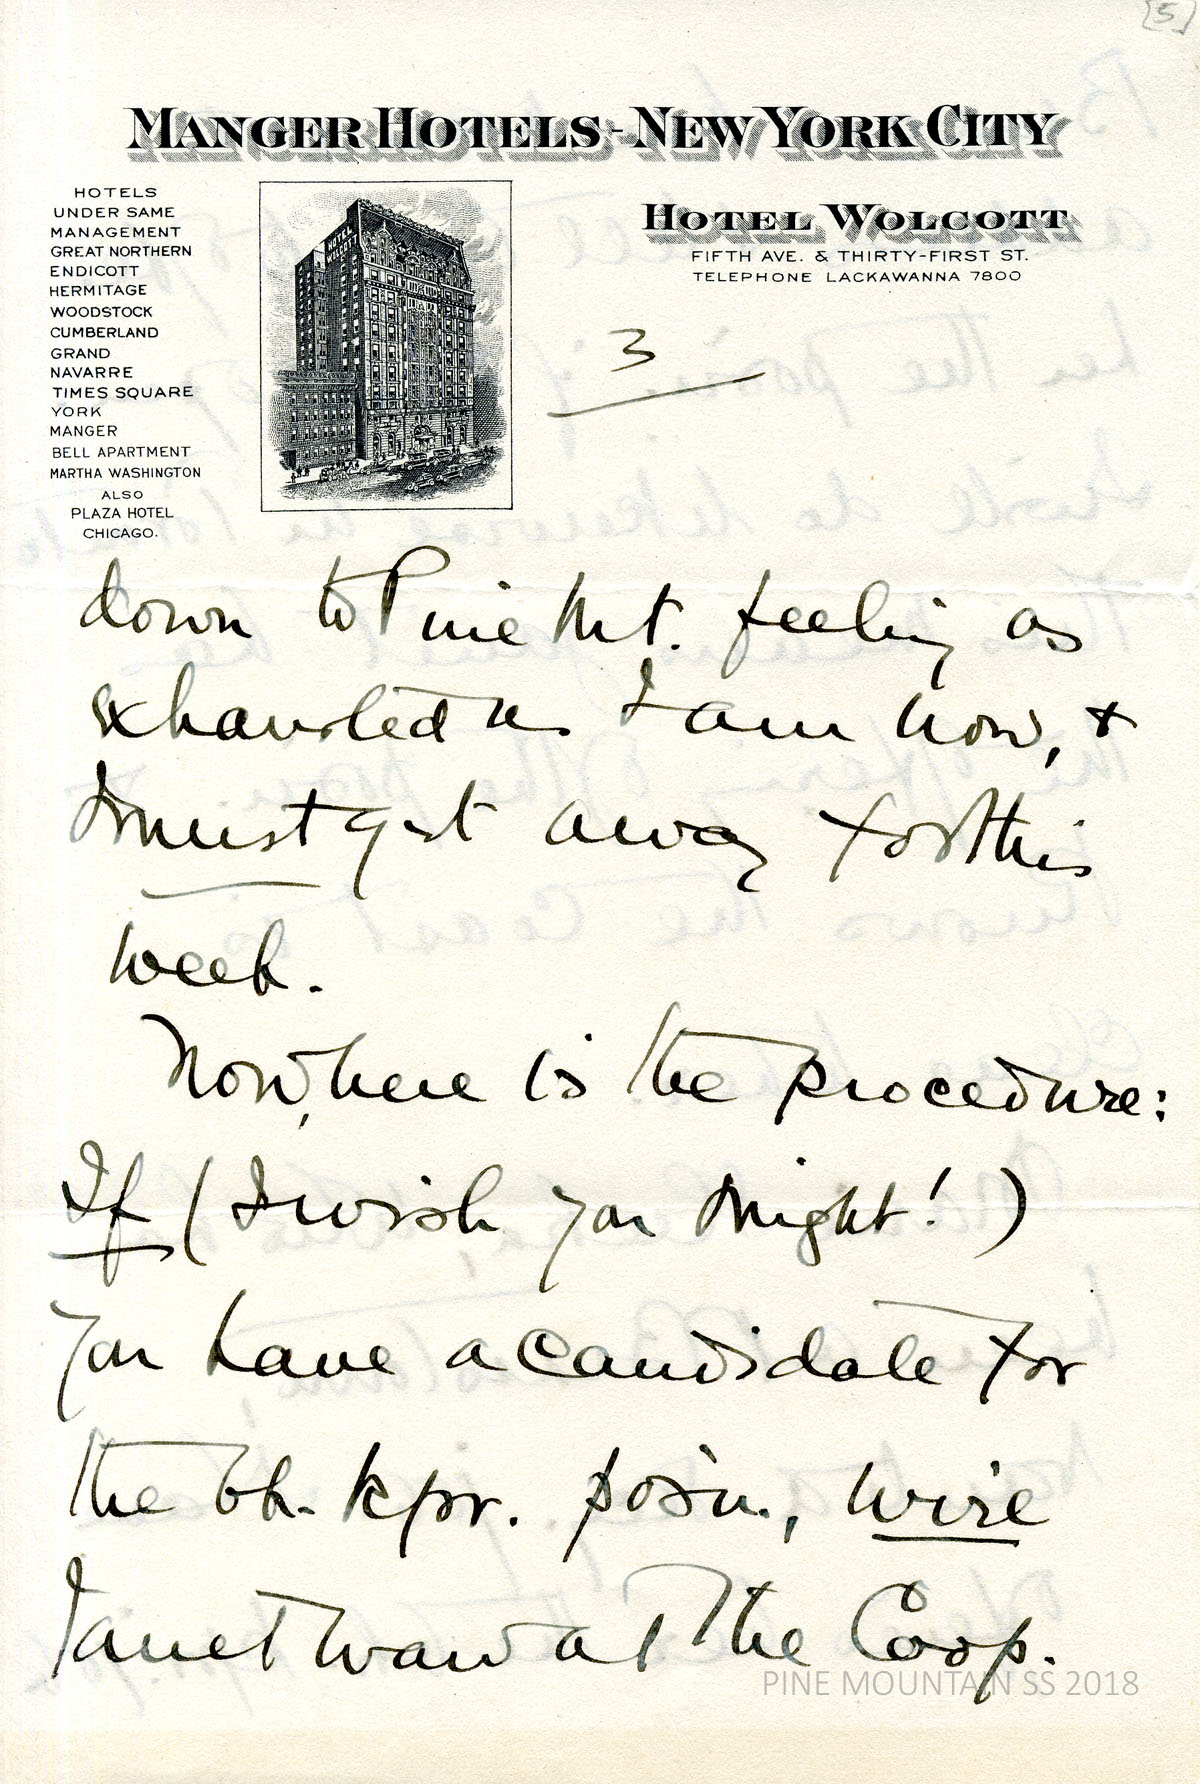 [5]
MANGER HOTELS - NEW YORK CITY
HOTELS
UNDER SAME
MANAGEMENT
GREAT NORTHERN
ENDICOTT
HERMITAGE
WOODSTOCK
CUMBERLAND
GRAND
NAVARRE
TIMES SQUARE
YORK
MANGER
BELL APARTMENT
MARTHA WASHINGTON
ALSO
PLAZA HOTEL
CHICAGO.
HOTEL WOLCOTT
FIFTH AVE. & THIRTY-FIRST ST.
TELEPHONE LACKAWANNA 7800
3
down to Pine Mt. feeling as
exhausted as I am now, &
I must get away for this
week.
Now, here is the procedure:
If (I wish you might!)
you have a candidate for
the bk. kpr. pos'n., wire
Janet Ward at the Coop.
PINE MOUNTAIN SS 2018